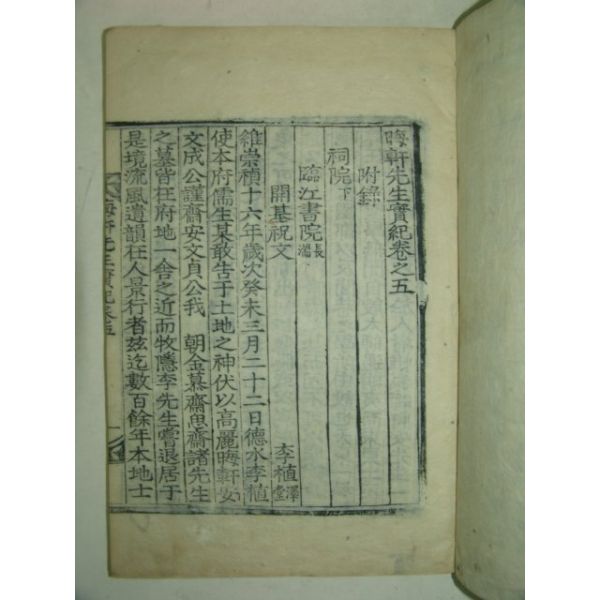 晦軒先生實紀卷之五
附錄
祠院下
臨江書院長湍
開基祝文 李植澤堂
維崇禎十六年歲次癸未三月二十二日德水李植
使本府儒生某敢告于土地之神伏以高麗晦軒安
文成公謹齋安文貞公我 朝金慕齋思齋諸先生
之墓皆在府地一舍之近而牧隱李先生嘗退居于
是境流風遺韻在人景行者玆迄數百餘年本地士
晦軒先生實紀卷五